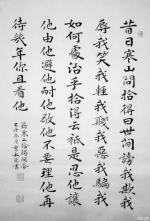 昔日寒山問拾得曰世間謗我欺我
辱我笑我輕我賤我惡我騙我
如何處治乎拾得云祇是忍他讓
他由他避他耐他敬他不要理他再
待幾年你且看他
寒山拾得問答